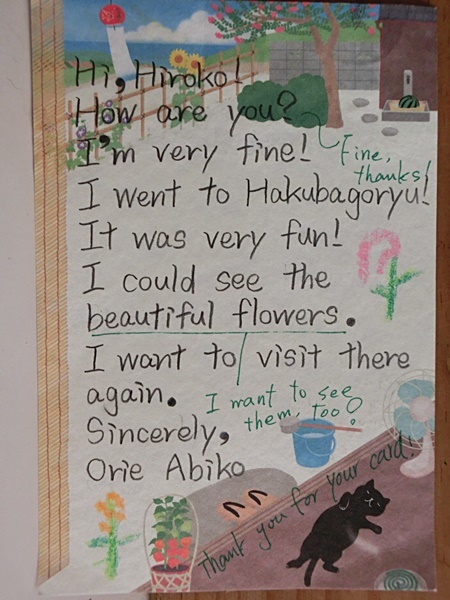 Hi, Hiroko!
How are you?
Fine,
thanks!
I'm very fine!
I went to Hakubagoryu!
It was very fun!
I could see the
beautiful flowers.
I want to visit there
again.
I want to see
them, too!
Sincerely,
Orie Abiko
Thank you for your card!